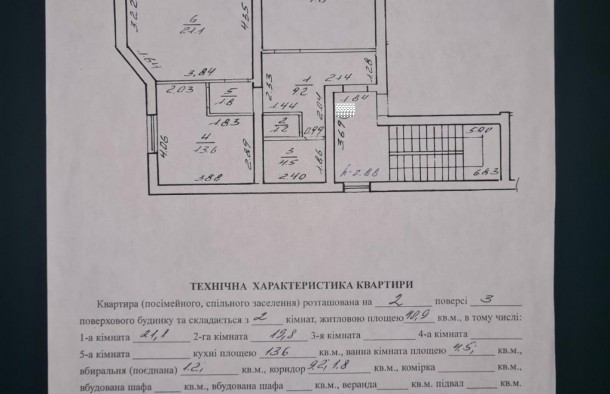 3.22
6
21.1
4.35
1.64
3.84
2.03
5
1.8
1.83
4.06
4
13.6
2.89
3.88
2.53
1
9.2
2.14
1.28
1.44
2.04
2
1.2
0.99
3
4.5
1.86
2.40
1.84
3.69
h-2.88
5.00
6.83
ТЕХНІЧНА ХАРАКТЕРИСТИКА КВАРТИРИ
Квартира (посімейного, спільного заселення) розташована на 2 поверсі 3
поверхового будинку та складається з 2 кімнат, житловою площею 40,9 кв.м., в тому числі:
1-а кімната 21,1 2-га кімната 19,8 3-я кімната 4-а кімната
5-а кімната кухні площею 13.6 кв.м., ванна кімната площею 4.5, кв.м.,
вбиральня (поєднана) 1.2, кв.м., коридор 9.2, 1.8 кв.м., комірка кв.м.,
вбудована шафа кв.м., вбудована шафа кв.м., веранда кв.м. підвал кв.м.